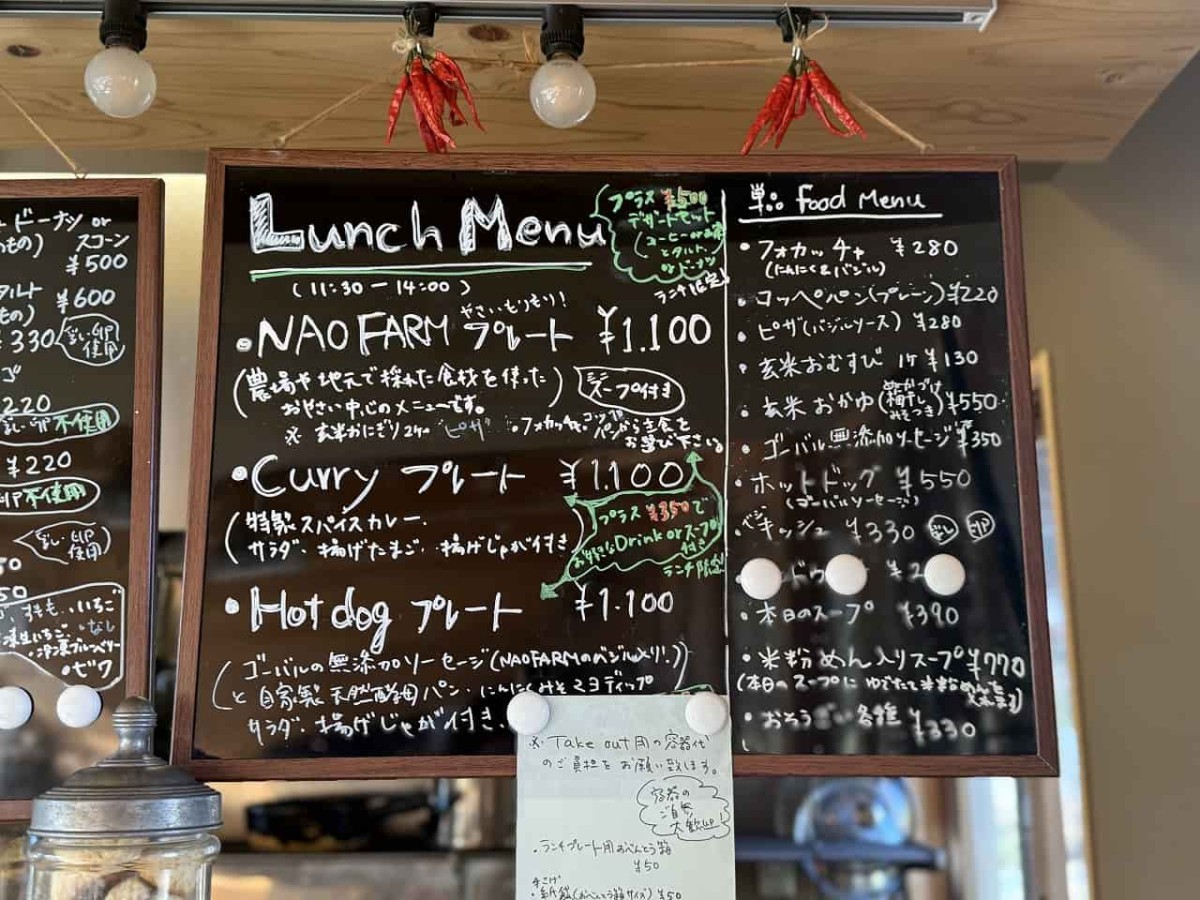 ドーナツ or
スコーン
¥500
タルト
¥600
330
使用
220
不使用
¥220
不使用
使用
いちご
なし
・冷凍ブルーベリー
・ゼワ
Lunch Menu
(11:30 - 14:00)
プラス ¥500
デザートセット
とタルト
orドーナツ
ランチ限定!
やさいもりもり!
・NAO FARM プレート ¥1.100
(農場や地元で採れた食材を使った
おやさい中心のメニューです。)
スープ付き
※ 玄米おにぎり2ケ ・ピザ ・フォカッチャ・コッペ
パンから主食を
お選び下さい
・Curry プレート ¥1.100
(特製スパイスカレー.
サラダ・揚げたまご・揚げじゃが付き
プラス ¥350で
お得なDrink orスープ
付き
ランチ限定
・Hot dog プレート ¥1.100
(ゴーバルの無添加ソーセージ(NAO FARMのバジル入り!)
と自家製天然酵母パン・にんにくみそマヨディップ
サラダ・揚げじゃが付き.
単品 Food Menu
・フォカッチャ ¥280
(にんにく&バジル)
・コッペパン(プレーン) ¥220
・ピザ(バジルソース) ¥280
・玄米おむすび 1ケ ¥130
・玄米おかゆ(梅干し みそつき) ¥550
・ゴーバル無添加ソーセージ ¥350
・ホットドッグ ¥550
(ゴーバルソーセージ)
・キッシュ ¥330
¥2
・本日のスープ ¥390
・米粉めん入りスープ ¥770
(本日のスープに ゆでたて米粉めん
・おろうさい各種 ¥330
※ Take out用の容器代
のご負担をお願い致します。
容器の
ご持参
大歓迎!
・ランチプレート用おべんとう箱
¥50
手さげ
・紙袋(おべんとう箱サイズ) ¥50